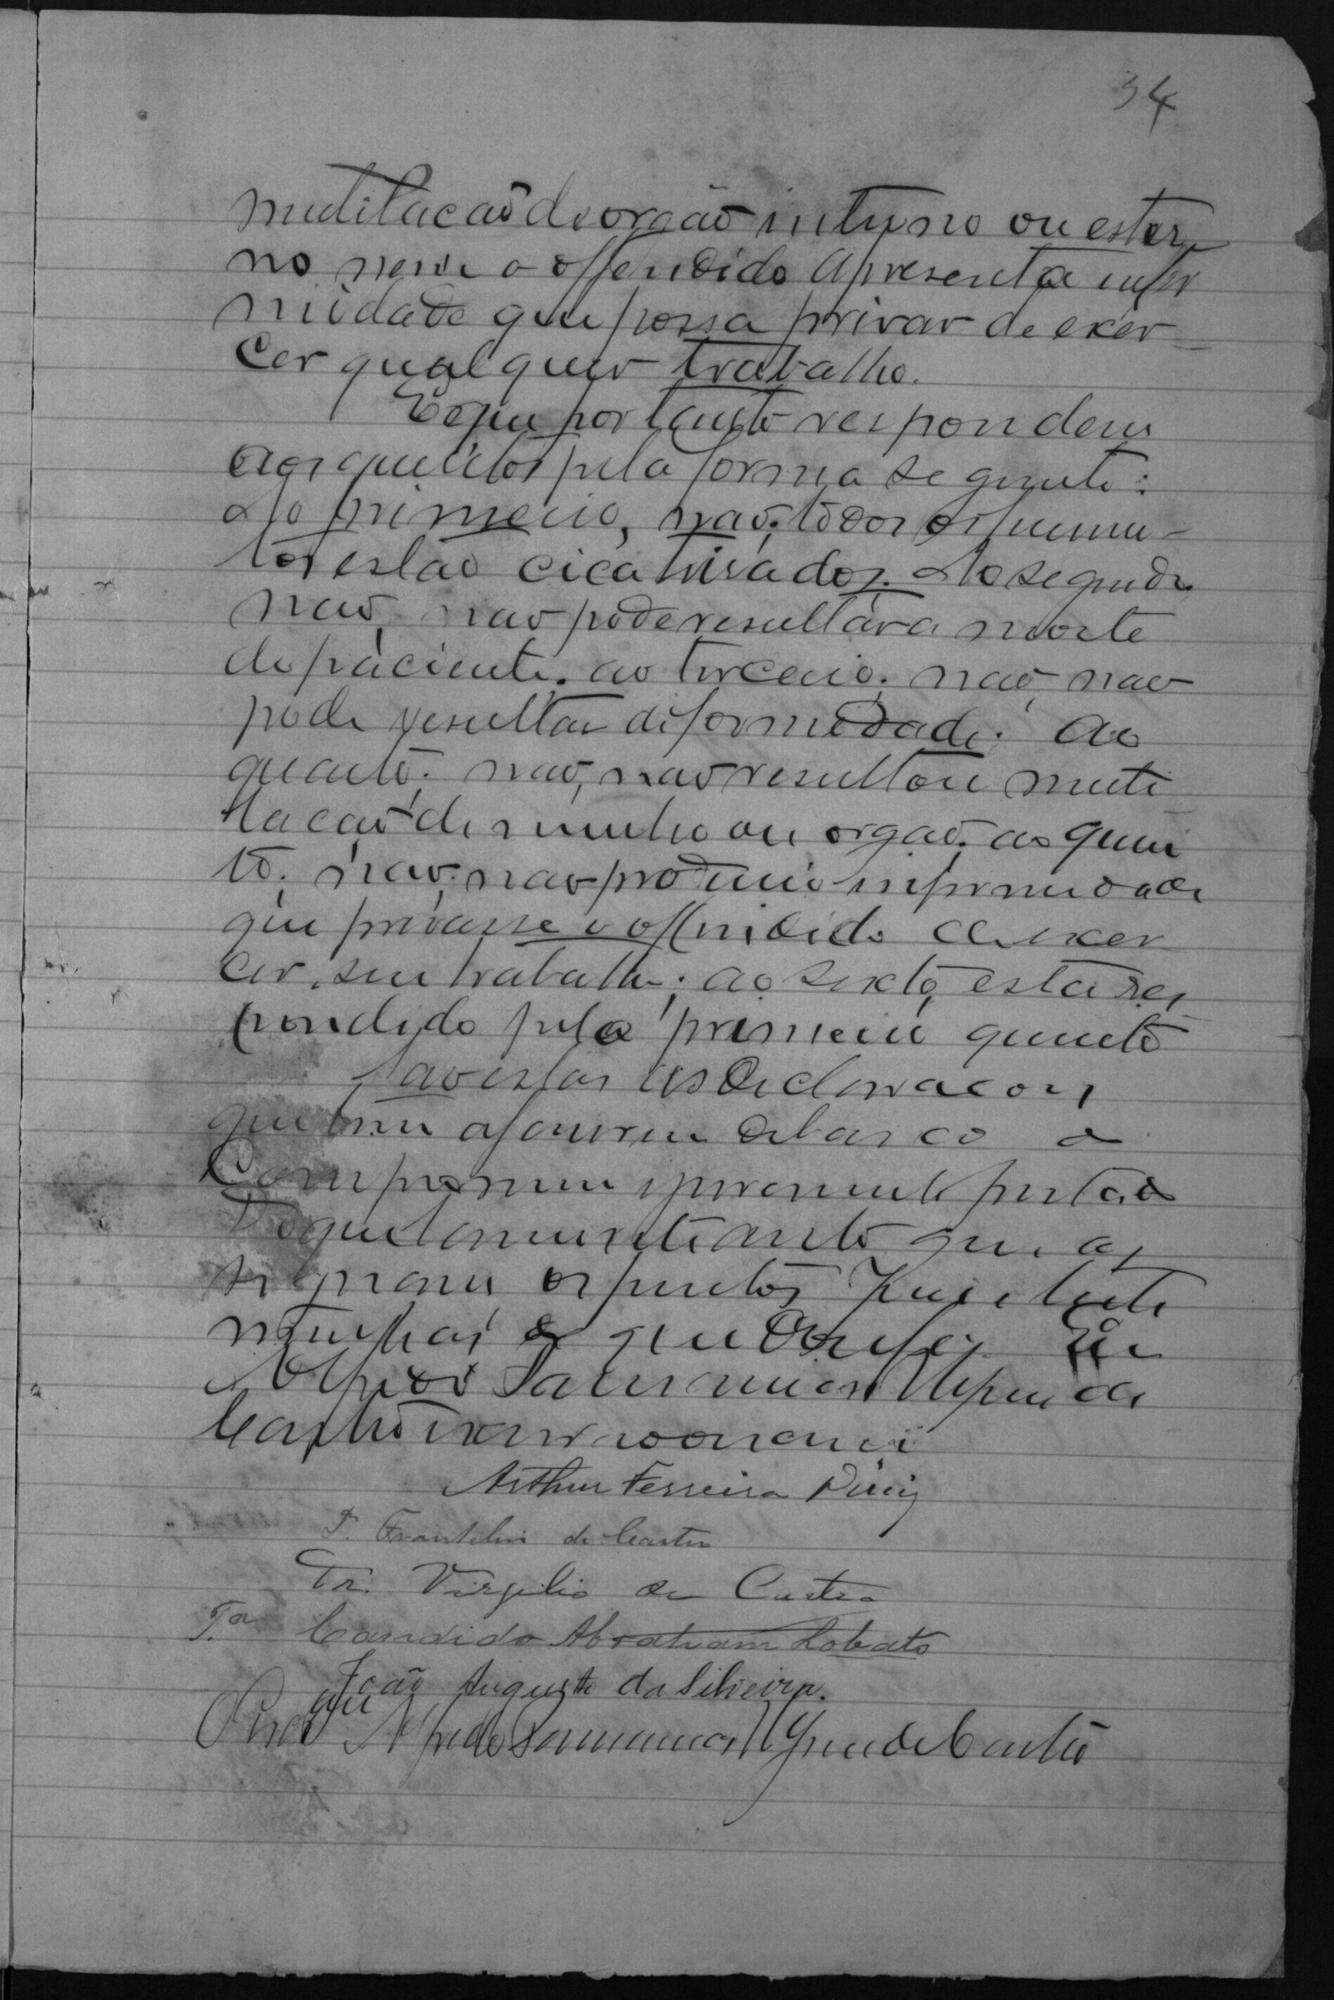 34
mutilacaõ de orgaõ interno ou exter
no nem o offendido apresenta infer
midade que possa privar de exer-
cer qualquer trabalho.
E que portanto respondem
aos quesitos pela forma seguinte:
Ao primeiro, naõ; todos os ferimen-
tos estaõ cicatrisados. Ao segundo
naõ, naõ pode resultar a morte
do paciente. ao terceiro. naõ, naõ
pode resultar deformidade. Ao
quarto. naõ, naõ resultou muti
lacaõ de membro ou orgaõ. ao quin
to. naõ; naõ produzio infermidade
que privasse o offendido de exer
cer seu trabalho; ao sexto, está res
pondido pelo primeiro quesito
saõ estas as declaracoes
que tem a fazerem debaixo o
Compromisso prestado
que as
signam os peritos
e que dou fé. Eu
Alfredo de
Castro
Arthur Ferreira
P. Franklin de Castro
Tr. Virgilio de Castro
T.a Candido Abraham Lobato
João Augusto da Silveira.
Alfredo de Castro